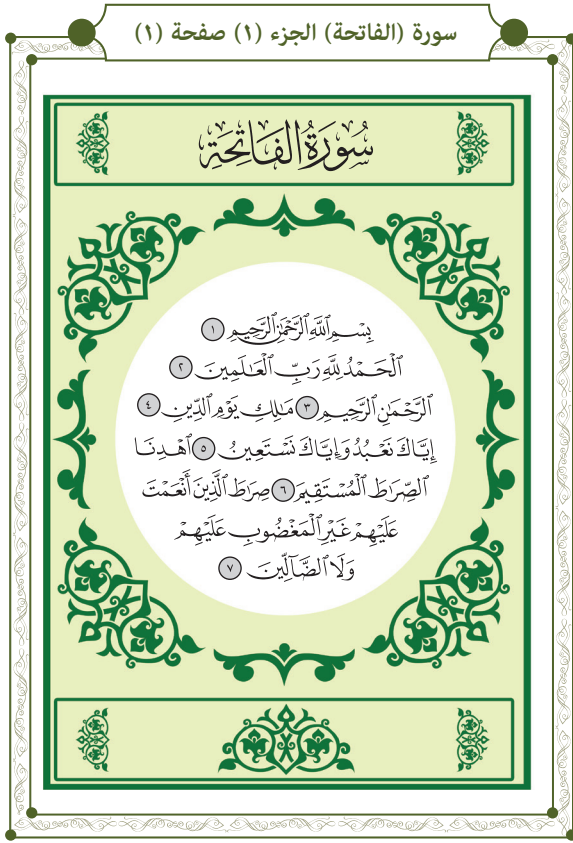 سورة (الفاتحة) الجزء (١) صفحة (١)
سُورَةُ الفَاتِحَةِ
بِسْمِ ٱللَّهِ ٱلرَّحْمَٰنِ ٱلرَّحِيمِ ١
ٱلْحَمْدُ لِلَّهِ رَبِّ ٱلْعَٰلَمِينَ ٢
ٱلرَّحْمَٰنِ ٱلرَّحِيمِ ٣ مَٰلِكِ يَوْمِ ٱلدِّينِ ٤
إِيَّاكَ نَعْبُدُ وَإِيَّاكَ نَسْتَعِينُ ٥ ٱهْدِنَا
ٱلصِّرَٰطَ ٱلْمُسْتَقِيمَ ٦ صِرَٰطَ ٱلَّذِينَ أَنْعَمْتَ
عَلَيْهِمْ غَيْرِ ٱلْمَغْضُوبِ عَلَيْهِمْ
وَلَا ٱلضَّآلِّينَ ٧